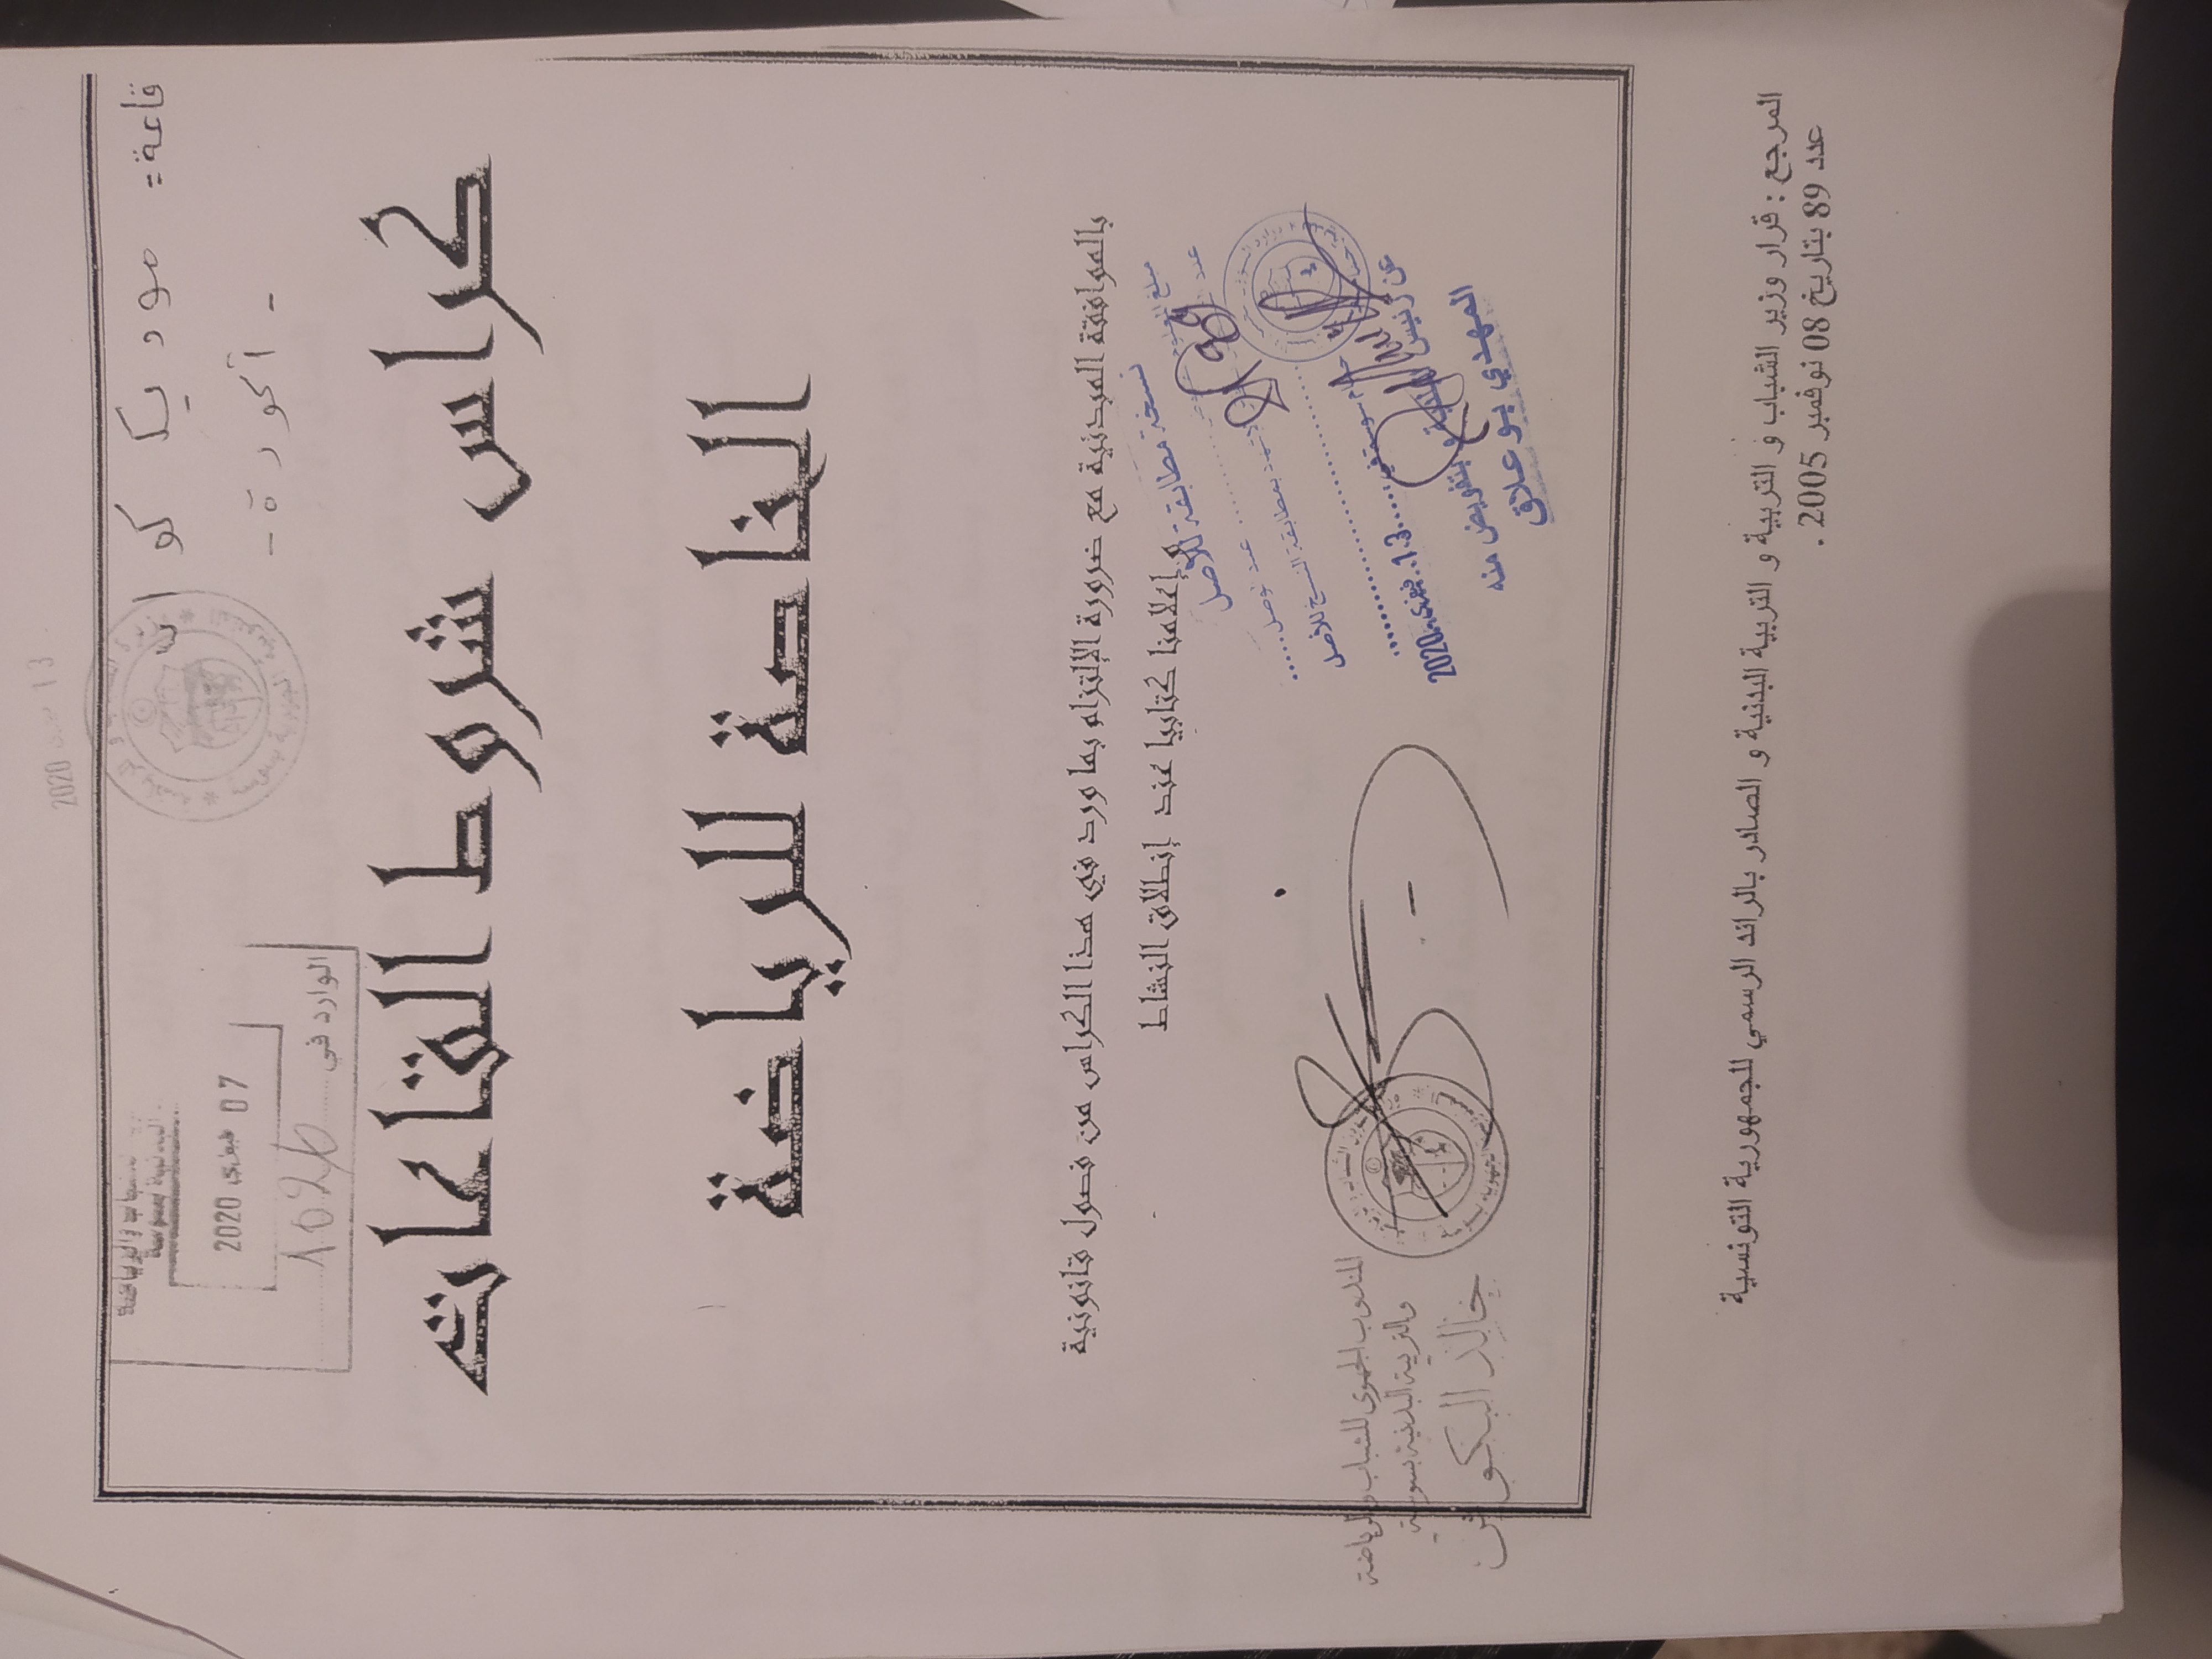 قاعة: موديكا كو
- أكودة -
13 2020
الشباب والرياضة
07 فيفري 2020
الوارد في
1026
كراس شروط القاعات
الخاصة للرياضة
بالموافقة المبدئية مع ضرورة الإلتزام بما ورد في هذا الكراس من فصول قانونية
و إعلامنا كتابيا عند إنطلاق النشاط
نسخة مطابقة للأصل
مبلغ المعلوم
عدد
عدد توصل
بمطابقة النسخ للأصل
13 فيفري 2020
عن رئيس البلدية و بتفويض منه
المهدي بوعلاق
المندوب الجهوي للشباب والرياضة
والتربية البدنية بسوسة
خالد البكوش
المرجع : قرار وزير الشباب و التربية و التربية البدنية و الصادر بالرائد الرسمي للجمهورية التونسية
عدد 89 بتاريخ 08 نوفمبر 2005 .